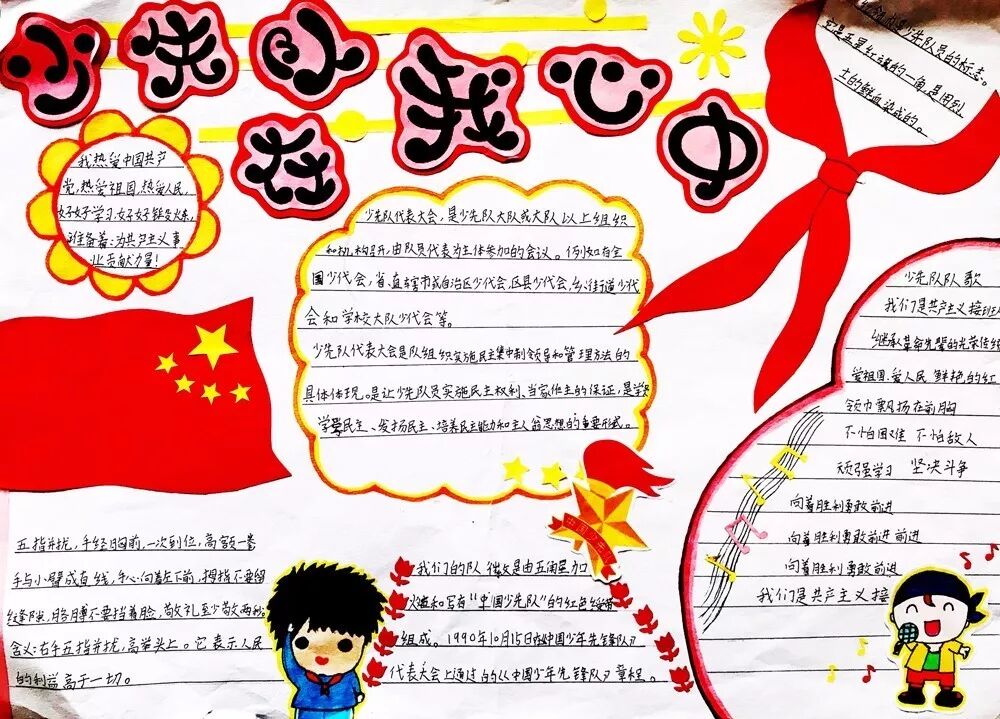 少先队在我心中
我热爱中国共产
党,热爱祖国,热爱人民,
好好学习,好好锻炼,
准备着:为共产主义事
业贡献力量!
少先队代表大会,是少先队大队或大队以上组织
和机构召开,由队员代表为主体参加的会议。例如有全
国少代会,省、直辖市或自治区少代会,区县少代会,乡、街道少代
会和学校大队少代会等。
少先队代表大会是队组织实施民主集中制领导和管理方法的
具体体现。是让少先队员实施民主权利、当家作主的保证,是
学民主、发扬民主、培养民主能力和主人翁思想的重要形式。
是少先队员的标志。
它是五星红旗的一角,是用烈
士的鲜血染成的。
少先队队歌
我们是共产主义接班人
继承革命先辈的光荣传统
爱祖国,爱人民 鲜艳的红
领巾飘扬在前胸
不怕困难 不怕敌人
顽强学习 坚决斗争
向着胜利勇敢前进
向着胜利勇敢前进 前进
向着胜利勇敢前进
我们是共产主义接
五指并拢,手经胸前,一次到位,高额一拳
手与小臂成直线,手心向着左下前,拇指不要留
缝隙,胳膊不要挡着脸,敬礼至少敬两秒
含义:右手五指并拢,高举头上。它表示人民
的利益高于一切。
中国少年
我们的队 徽是由五角星加
火炬和写有“中国少先队”的红色绶带
组成。1990年10月15日在中国少年先锋队
代表大会上通过的《中国少年先锋队》章程。